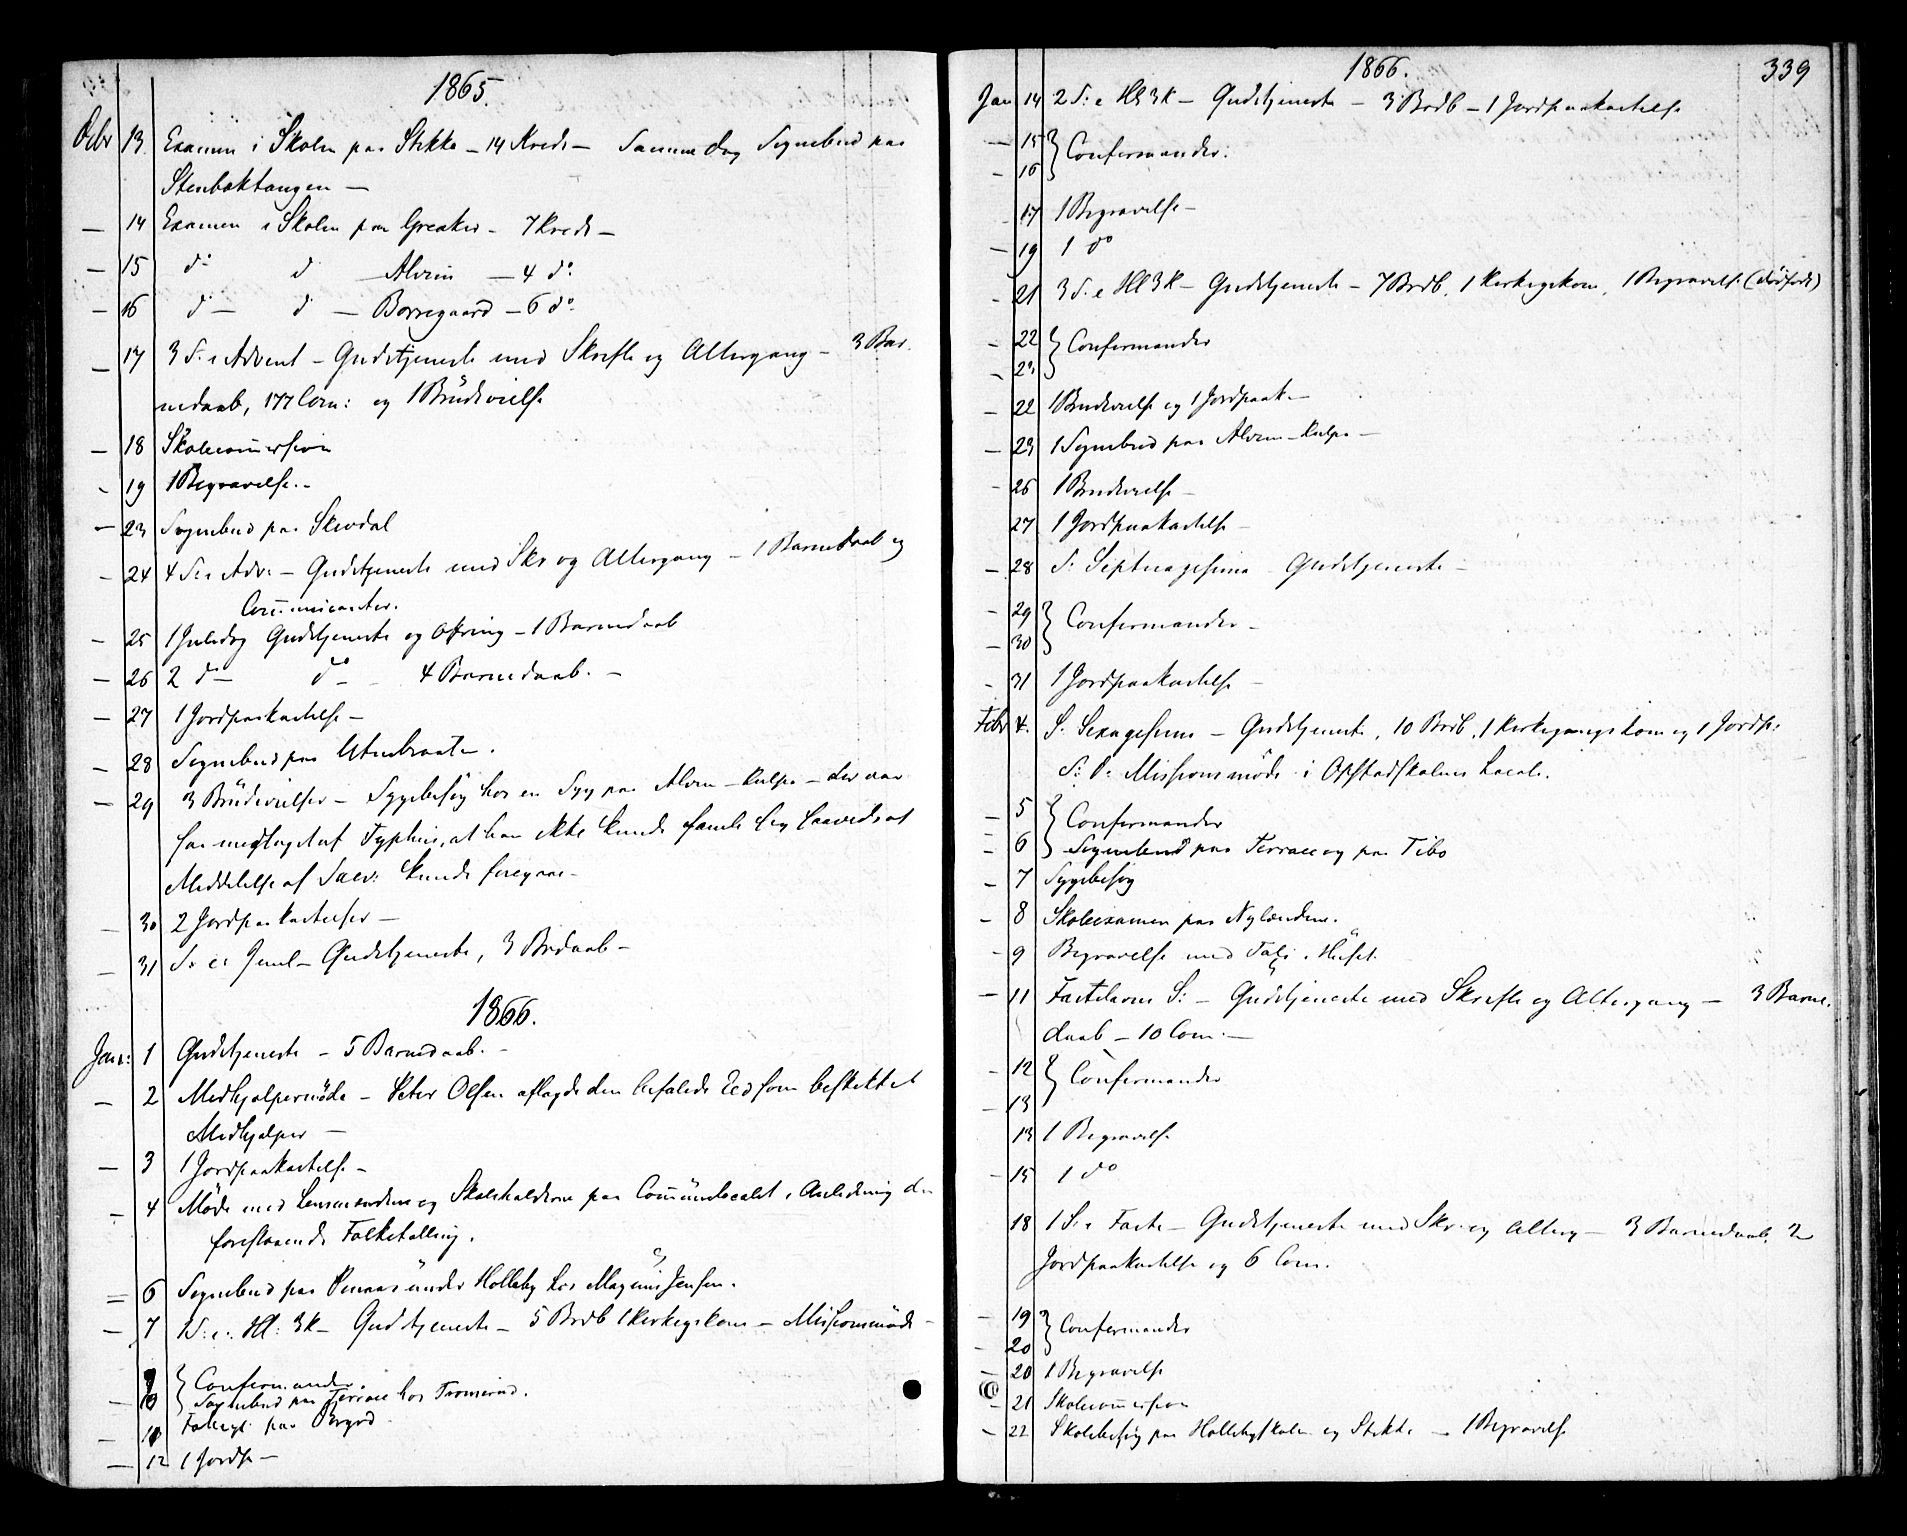 1865.
Dcbr 13. Examen i Skolen paa Stikka – 14 Kreds – Samme dag Sognebud paa
Stenbaktangen –
– 14 Examen i Skolen paa Greaker – 7 Kreds –
– 15 do d – Alvim – 4 do
– 16 d – d – Borregaard – 6 do
– 17 3 S. i Advent – Gudstjeneste med Skrifte og Altergang – 3 Bar
nedaab, 177 Com: og 1 Brudevielse
– 18 Skolecommission
– 19 1 Begravelse. –
– 23 Sognebud paa Skivdal
– 24 4 S. i Adv. – Gudstjeneste med Skr og Altergang – 1 Barnedaab og
Communicanter.
– 25 1 Juledag Gudstjeneste og Ofring – 1 Barnedaab
– 26 2 d – do – 4 Barnedaab. –
– 27 1 Jordpaakastelse –
– 28 Sognebud paa
– 29 3 Brudevielser – Sygebesøg hos en Syg paa Alvim – der var
saa medtaget af Typhus, at han ikke kunde samle sig saavidt at
Meddelelse af Sacr: kunde foregaae –
– 30 2 Jordpaakastelser –
– 31 S. e. Juul – Gudstjeneste, 3 Bdaab –
1866.
Janr: 1 Gudstjeneste – 5 Barnedaab. –
– 2 Medhjælpermøde – Peter Olsen aflagde den befalede Eed som beskikket
Medhjælper –
– 3 1 Jordpaakastelse –
– 4 Møde med Lensmændene og Skoleholderne paa Communelocalet i Anledning den
forestaaende Folketælling.
– 6 Sognebud paa under Holleby hos Magnus Jensen.
– 7 1 S. e. Hl: 3K – Gudstjeneste – 5 Brdb 1 Kirkegskone – Missionsmøde –
9 } Confirmander.
– 10 } Sognebud paa Terrace hos
– 11 paa
– 12 1 Jordp –
1866. 339
Jan 14 2 S: e Hl 3K – Gudstjeneste – 3 Brdb – 1 Jordpaakastelse
– 15 } Confirmander.
– 16 }
– 17 1 Begravelse –
– 19 1 do
– 21 3 S. e Hl 3K – Gudstjeneste – 7 Brdb, 1 Kirkegskone, 1 Begravelse (dødfødt)
– 22 } Confirmander
– 23 }
– 22 1 Brudevielse og 1 Jordpaak –
– 23 1 Sognebud paa Alvim –
– 26 1 Brudevielse –
27 1 Jordpaakastelse –
– 28 S: Septuagesima Gudstjeneste –
– 29 } Confirmander –
– 30 }
– 31 1 Jordpaakastelse –
Febr 4. S. Sexagesima – Gudstjeneste, 10 Brdb, 1 Kirkegangskone og 1 Jordp:
S: D: Missionsmøde i Opstadskolens Locale.
– 5 } Confirmander
– 6 } Sognebud paa Terrace og paa Tibo
– 7 Sygebesøg
– 8 Skoleexamen paa Nylændene.
– 9 Begravelse med Tale i Huset.
– 11 Fastelavns S: – Gudstjeneste med Skrifte og Altergang – 3 Barne
daab – 10 Com. –
– 12 } Confirmander
– 13 }
13 1 Begravelse
– 15 1 do
18 1 S. i Faste – Gudstjeneste med Skr. og Alterg – 3 Barnedaab, 2
Jordpaakastelse og 6 Com.
– 19 } Confirmander
– 20 }
– 20 1 Begravelse
– 21 Skolecommission
– 22 Skolebesøg paa Hollebyskolen og Stikka – 1 Begravelse